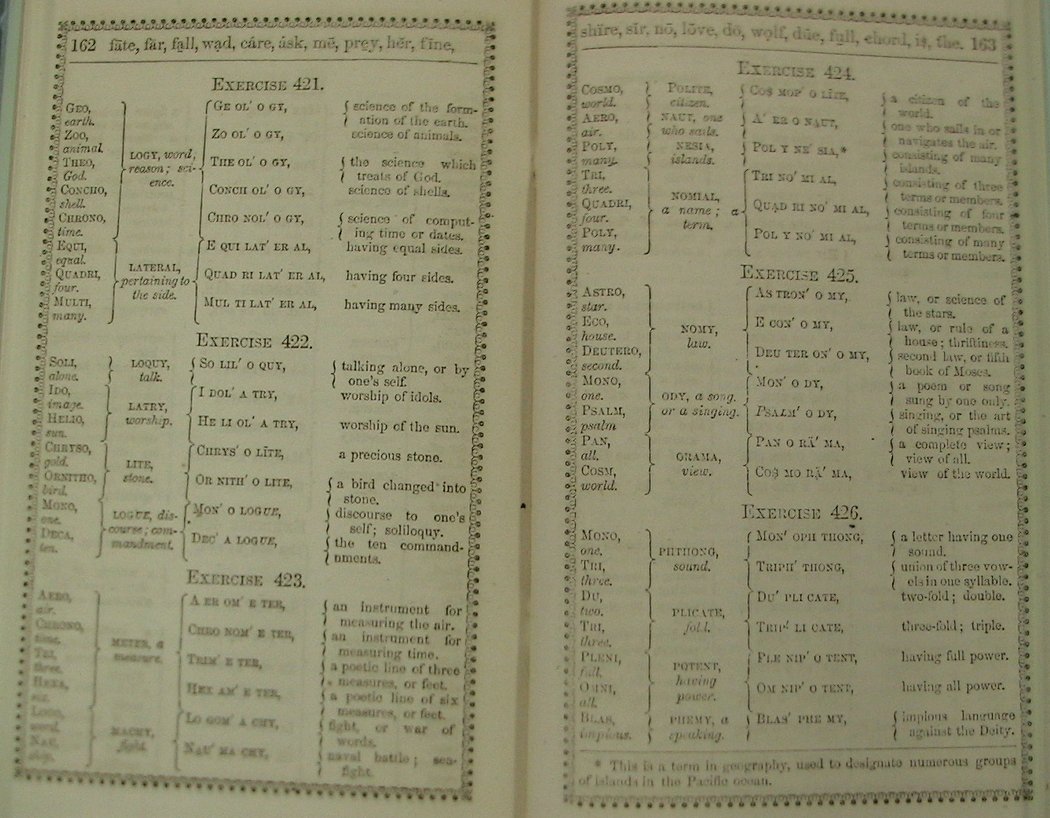 162 fāte, fär, fạll, wạd, cáre, ásk, mē, prẹy, hẽr, fīne,
EXERCISE 421.
GEO, GE OL′ O GY, science of the form-
earth. ation of the earth.
ZOO, ZO OL′ O GY, science of animals.
animal.
THEO, LOGY, word, THE OL′ O GY, the science which
God. reason; sci- treats of God.
CONCHO, ence. CONCH OL′ O GY, science of shells.
shell.
CHRONO, CHRO NOL′ O GY, science of comput-
time. ing time or dates.
EQUI, E QUI LAT′ ER AL, having equal sides.
equal.
QUADRI, LATERAL, QUAD RI LAT′ ER AL, having four sides.
four. pertaining to
MULTI, the side. MUL TI LAT′ ER AL, having many sides.
many.
EXERCISE 422.
SOLI, LOQUY, SO LIL′ O QUY, talking alone, or by
alone. talk. one's self.
IDO, I DOL′ A TRY, worship of idols.
image. LATRY,
HELIO, worship. HE LI OL′ A TRY, worship of the sun.
sun.
CHRYSO, CHRYS′ O LĪTE, a precious stone.
gold. LITE,
ORNITHO, stone. OR NITH′ O LITE, a bird changed into
bird. stone.
MONO, LOGUE, dis- MON′ O LOGUE, discourse to one's
one. course; com- self; soliloquy.
DECA, mandment. DEC′ A LOGUE, the ten command-
ten. nments.
EXERCISE 423.
AERO, A ER OM′ E TER, an instrument for
air. measuring the air.
CHRONO, CHRO NOM′ E TER, an instrument for
time. METER, a measuring time.
TRI, measure. TRIM′ E TER, a poetic line of three
three. measures, or feet.
HEXA, HEX AM′ E TER, a poetic line of six
six. measures, or feet.
LOGO, LO GOM′ A CHY, fight, or war of
word. MACHY, words.
NAU, fight. NAU′ MA CHY, naval battle; sea-
ship. fight.
shīre, sīr, nō, lȯve, do, wolf, dūe, full, chord, iş, the. 163
EXERCISE 424.
COSMO, POLITE, COS MOP′ O LĪTE, a citizen of the
world. citizen. world.
AERO, NAUT, one A′ ER O NAUT, one who sails in or
air. who sails. navigates the air.
POLY, NESIA, POL Y NE′ SIA,* consisting of many
many. islands. islands.
TRI, TRI NO′ MI AL, consisting of three
three. NOMIAL, terms or members.
QUADRI, a name; a QUAD RI NO′ MI AL, consisting of four
four. term. terms or members.
POLY, POL Y NO′ MI AL, consisting of many
many. terms or members.
EXERCISE 425.
ASTRO, AS TRON′ O MY, law, or science of
star. the stars.
ECO, NOMY, E CON′ O MY, law, or rule of a
house. law. house; thriftiness.
DEUTERO, DEU TER ON′ O MY, second law, or fifth
second. book of Moses.
MONO, MON′ O DY, a poem or song
one. ODY, a song, sung by one only.
PSALM, or a singing. PSALM′ O DY, singing, or the art
psalm of singing psalms.
PAN, PAN O RÄ′ MA, a complete view;
all. ORAMA, view of all.
COSM, view. COŞ MO RÄ′ MA, view of the world.
world.
EXERCISE 426.
MONO, MON′ OPH THONG, a letter having one
one. PHTHONG, sound.
TRI, sound. TRIPH′ THONG, union of three vow-
three. els in one syllable.
DU, DU′ PLI CATE, two-fold; double.
two. PLICATE,
TRI, fold. TRIP′ LI CATE, three-fold; triple.
three.
PLENI, PLE NIP′ O TENT, having full power.
full. POTENT,
OMNI, having OM NIP′ O TENT, having all power.
all. power.
BLAS, PHEMY, a BLAS′ PHE MY, impious language
impious. speaking. against the Deity.
* This is a term in geography, used to designate numerous groups
of islands in the Pacific ocean.